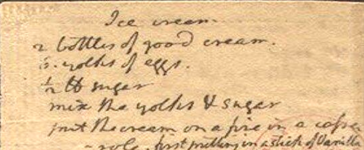 Ice cream.
2 bottles of good cream.
6. yolks of eggs.
1/2 ℔ sugar
mix the yolks & sugar
put the cream on a fire in a casse
-role, first putting in a stick of Vanilla